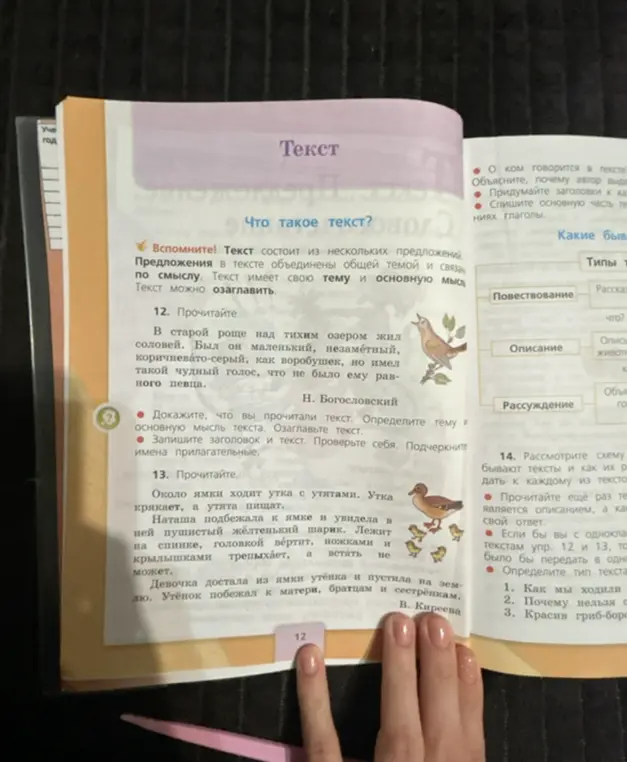 Уче
год
Текст
Что такое текст?
Вспомните! Текст состоит из нескольких предложений.
Предложения в тексте объединены общей темой и связаны
по смыслу. Текст имеет свою тему и основную мысль.
Текст можно озаглавить.
12. Прочитайте.
В старой роще над тихим озером жил
соловей. Был он маленький, незаметный,
коричневато-серый, как воробушек, но имел
такой чудный голос, что не было ему рав-
ного певца.
Н. Богословский
• Докажите, что вы прочитали текст. Определите тему и
основную мысль текста. Озаглавьте текст.
• Запишите заголовок и текст. Проверьте себя. Подчеркните
имена прилагательные.
13. Прочитайте.
Около ямки ходит утка с утятами. Утка
крякает, а утята пищат.
Наташа подбежала к ямке и увидела в
ней пушистый жёлтенький шарик. Лежит
на спинке, головкой вертит, ножками и
крылышками трепыхает, а встать не
может.
Девочка достала из ямки утёнка и пустила на зем-
лю. Утёнок побежал к матери, братцам и сестрёнкам.
В. Киреева
12
• О ком говорится в тексте
Объясните, почему автор
• Придумайте заголовки к
• Спишите основную часть
ниях глаголы.
Какие
Типы
Повествование
что?
Описание
Рассуждение
14. Рассмотрите схему
бывают тексты и как их
дать к каждому из
• Прочитайте ещё раз
является описанием, а
свой ответ.
• Если бы вы с
текстам упр. 12 и 13,
было бы передать в
• Определите тип текста
1. Как мы ходили
2. Почему нельзя
3. Красив